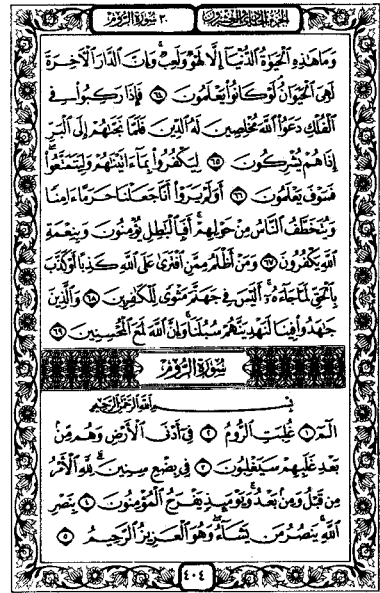 الجزء الحادي والعشرون
٣٠ سورة الروم
وَمَا هَٰذِهِ الْحَيَوٰةُ الدُّنْيَآ إِلَّا لَهْوٌ وَلَعِبٌ ۚ وَإِنَّ الدَّارَ الْآخِرَةَ
لَهِيَ الْحَيَوَانُ ۚ لَوْ كَانُوا يَعْلَمُونَ ۝٦٤ فَإِذَا رَكِبُوا فِي
الْفُلْكِ دَعَوُا اللَّهَ مُخْلِصِينَ لَهُ الدِّينَ فَلَمَّا نَجَّىٰهُمْ إِلَى الْبَرِّ
إِذَا هُمْ يُشْرِكُونَ ۝٦٥ لِيَكْفُرُوا بِمَآ ءَاتَيْنَٰهُمْ وَلِيَتَمَتَّعُوا ۖ
فَسَوْفَ يَعْلَمُونَ ۝٦٦ أَوَلَمْ يَرَوْا أَنَّا جَعَلْنَا حَرَمًا ءَامِنًا
وَيُتَخَطَّفُ النَّاسُ مِنْ حَوْلِهِمْ ۚ أَفَبِالْبَٰطِلِ يُؤْمِنُونَ وَبِنِعْمَةِ
اللَّهِ يَكْفُرُونَ ۝٦٧ وَمَنْ أَظْلَمُ مِمَّنِ افْتَرَىٰ عَلَى اللَّهِ كَذِبًا أَوْ كَذَّبَ
بِالْحَقِّ لَمَّا جَآءَهُ ۚ أَلَيْسَ فِي جَهَنَّمَ مَثْوًى لِلْكَٰفِرِينَ ۝٦٨ وَالَّذِينَ
جَٰهَدُوا فِينَا لَنَهْدِيَنَّهُمْ سُبُلَنَا ۚ وَإِنَّ اللَّهَ لَمَعَ الْمُحْسِنِينَ ۝٦٩
سورة الروم
بِسْمِ اللَّهِ الرَّحْمَٰنِ الرَّحِيمِ
الٓمٓ ۝١ غُلِبَتِ الرُّومُ ۝٢ فِيٓ أَدْنَى الْأَرْضِ وَهُمْ مِنْ
بَعْدِ غَلَبِهِمْ سَيَغْلِبُونَ ۝٣ فِي بِضْعِ سِنِينَ ۗ لِلَّهِ الْأَمْرُ
مِنْ قَبْلُ وَمِنْ بَعْدُ ۚ وَيَوْمَئِذٍ يَفْرَحُ الْمُؤْمِنُونَ ۝٤ بِنَصْرِ
اللَّهِ ۚ يَنْصُرُ مَنْ يَشَآءُ ۖ وَهُوَ الْعَزِيزُ الرَّحِيمُ ۝٥
٤٠٤